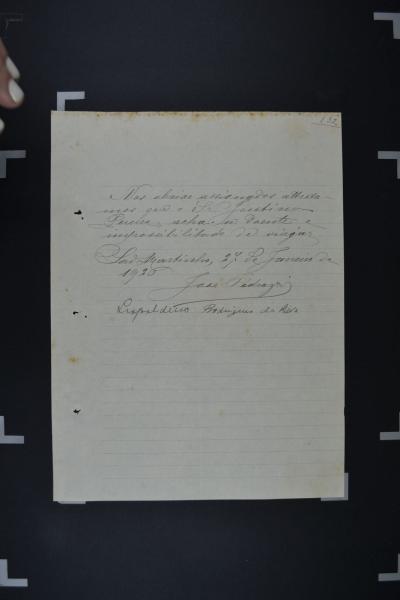 132
Nos abaixo assignados attesta-
mos que o Sr. Justino
Pereira, acha-se doente e
impossibilitado de viajar
São Martinho, 27 de Janeiro de
1926
José
Leopoldino Rodrigues da